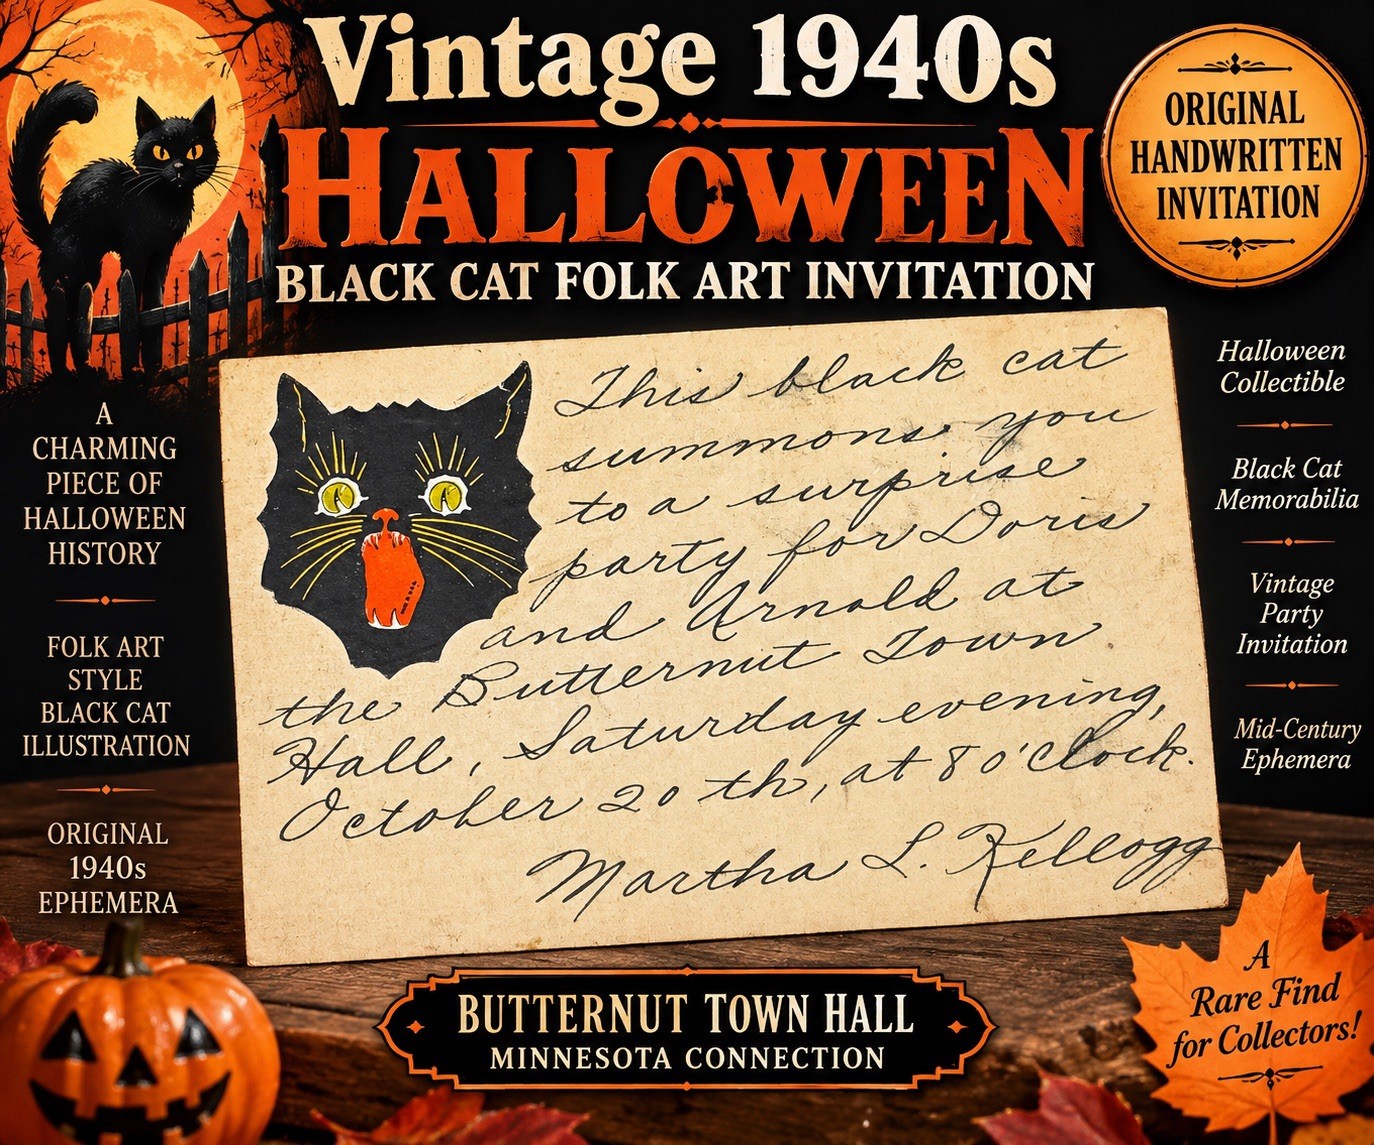 Vintage 1940s
HALLOWEEN
BLACK CAT FOLK ART INVITATION
ORIGINAL
HANDWRITTEN
INVITATION
A
CHARMING
PIECE OF
HALLOWEEN
HISTORY
FOLK ART
STYLE
BLACK CAT
ILLUSTRATION
ORIGINAL
1940s
EPHEMERA
This black cat
summons you
to a surprise
party for Doris
and Arnold at
the Butternut Town
Hall, Saturday evening,
October 20th, at 8 o'clock.
Martha L. Kellogg
Halloween
Collectible
Black Cat
Memorabilia
Vintage
Party
Invitation
Mid-Century
Ephemera
BUTTERNUT TOWN HALL
MINNESOTA CONNECTION
A
Rare Find
for Collectors!